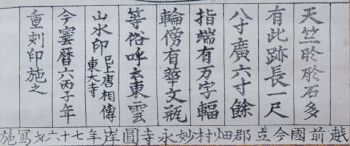 天竺於於石多
有此跡長一尺
八寸廣六寸餘
指端有万字輻
輪傍有華文瓶
等俗呼玄東雲
山水印 已上唐相傳
東大寺
今雲暦六丙子年
重刻印施之
越前國今立郡畑村妙永寺圓岸年七十六才寫施